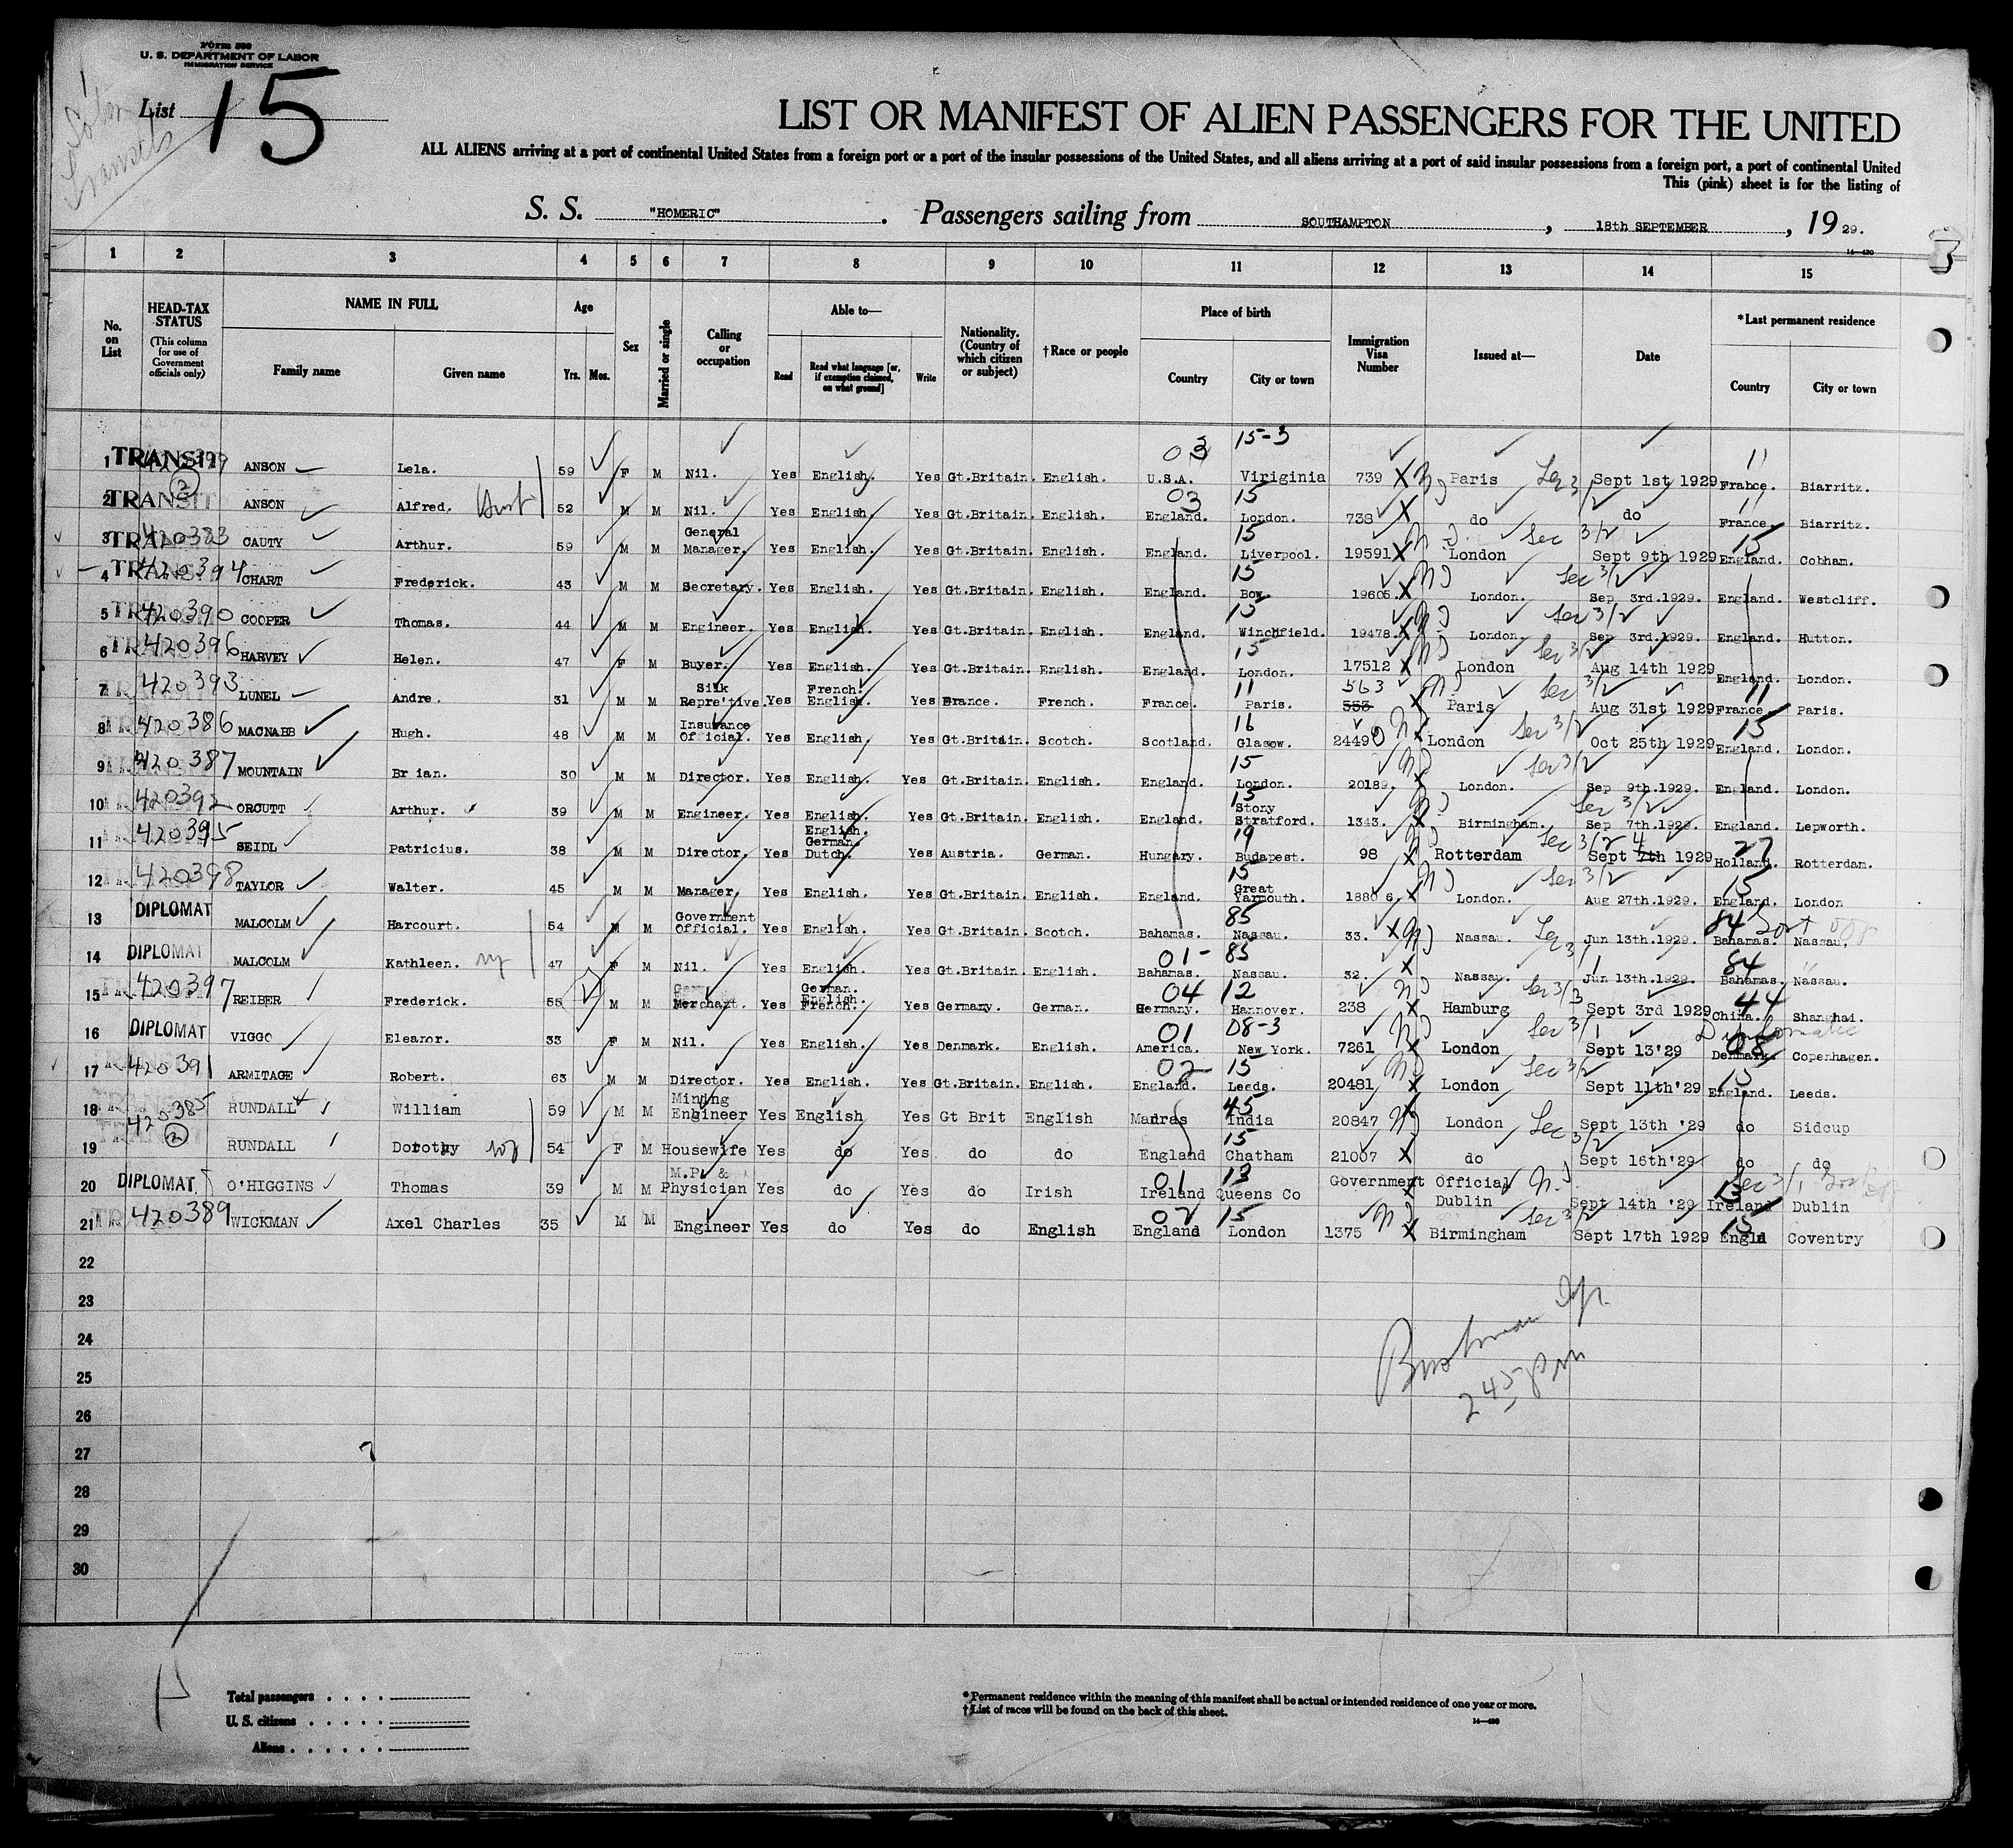 Form 500
U. S. DEPARTMENT OF LABOR
IMMIGRATION SERVICE
List 15
LIST OR MANIFEST OF ALIEN PASSENGERS FOR THE UNITED
ALL ALIENS arriving at a port of continental United States from a foreign port or a port of the insular possessions of the United States, and all aliens arriving at a port of said insular possessions from a foreign port, a port of continental United
This (pink) sheet is for the listing of
S. S. "HOMERIC". Passengers sailing from SOUTHAMPTON, 18th SEPTEMBER, 1929.
14—430
1 2 3 4 5 6 7 8 9 10 11 12 13 14 15
No. on List
HEAD-TAX STATUS (This column for use of Government officials only)
NAME IN FULL Family name Given name
Age Yrs. Mos.
Sex
Married or single
Calling or occupation
Able to— Read Read what language [or, if exemption claimed, on what ground] Write
Nationality. (Country of which citizen or subject)
†Race or people
Place of birth Country City or town
Immigration Visa Number
Issued at—
Date
*Last permanent residence Country City or town
1 TRANSIT ANSON Lela. 59 F M Nil. Yes English. Yes Gt.Britain. English. 03 U.S.A. 15-3 Viriginia 739 X Paris Sept 1st 1929 11 France. Biarritz.
2 TRANSIT ANSON Alfred. 52 M M Nil. Yes English. Yes Gt.Britain. English. 03 England. 15 London. 738 X do do 11 France. Biarritz.
3 TRANSIT 420383 CAUTY Arthur. 59 M M General Manager. Yes English. Yes Gt.Britain. English. England. 15 Liverpool. 19591 X London Sec 3/2 Sept 9th 1929 15 England. Cobham.
4 TRANSIT 420394 CHART Frederick. 43 M M Secretary. Yes English. Yes Gt.Britain. English. England. 15 Bow. 19605. X London. Sec 3/2 Sep 3rd.1929. England. Westcliff.
5 TRANSIT 420390 COOPER Thomas. 44 M M Engineer. Yes English. Yes Gt.Britain. English. England. 15 Winchfield. 19478. X London. Sec 3/2 Sep 3rd.1929. England. Hutton.
6 TRANSIT 420396 HARVEY Helen. 47 F M Buyer. Yes English. Yes Gt.Britain. English. England. 15 London. 17512 X London Sec 3/2 Aug 14th 1929 England. London.
7 TRANSIT 420393 LUNEL Andre. 31 M M Silk Repre'tive. Yes French. English. Yes France. French. France. 11 Paris. 563 553 X Paris Sec 3/2 Aug 31st 1929 11 France. Paris.
8 420386 MACNABB Hugh. 48 M M Insurance Official. Yes English. Yes Gt.Britain. Scotch. Scotland. 16 Glasow. 24490 X London Sec 3/2 Oct 25th 1929 15 England. London.
9 420387 MOUNTAIN Br ian. 30 M M Director. Yes English. Yes Gt.Britain. English. England. 15 London. 20189. X London. Sec 3/2 Sep 9th.1929. England. London.
10 420392 ORCUTT Arthur. 39 M M Engineer. Yes English. Yes Gt.Britain. English. England. 15 Stony Stratford. 1343. X Birmingham. Sec 3/2 Sep 7th.1929. England. Lepworth.
11 420395 SEIDL Patricius. 38 M M Director. Yes English. German. Dutch. Yes Austria. German. Hungary. 19 Budapest. 98 X Rotterdam Sec 3/2 Sept 4 7th 1929 27 Holland. Rotterdam.
12 420398 TAYLOR Walter. 45 M M Manager. Yes English. Yes Gt.Britain. English. England. 15 Great Yarmouth. 1880 6. X London. Sec 3/2 Aug 27th.1929. 15 England. London
13 DIPLOMAT MALCOLM Harcourt. 54 M M Government Official. Yes English. Yes Gt.Britain. Scotch. Bahamas. 85 Nassau. 33. X Nassau. Sec 3/1 Jun 13th.1929. 84 Bahamas. Nassau.
14 DIPLOMAT MALCOLM Kathleen. 47 F M Nil. Yes English. Yes Gt.Britain. English. 01- Bahamas. 85 Nassau. 32. X Nassau. Jun 13th.1929. 84 Bahamas. Nassau.
15 420397 REIBER Frederick. 55 M M Merchant. Yes German. English. French. Yes Germany. German. 04 Germany. 12 Hannover. 238 X Hamburg Sec 3/3 Sept 3rd 1929 44 China. Shanghai.
16 DIPLOMAT VIGGO Eleanor. 33 F M Nil. Yes English. Yes Denmark. English. 01 America. 08-3 New York. 7261 X London Sec 3/1 Sept 13'29 Diplomatic 08 Denmark. Copenhagen.
17 420391 ARMITAGE Robert. 63 M M Director. Yes English. Yes Gt.Britain. English. 02 England. 15 Leeds. 20481 X London Sec 3/2 Sept 11th'29 15 England. Leeds.
18 TRANSIT 420385 RUNDALL William 59 M M Mining Engineer Yes English Yes Gt Brit English Madras 45 India 20847 London Sec 3/2 Sept 13th '29 do Sidcup
19 TRANSIT 2 RUNDALL Dorothy 54 F M Housewife Yes do Yes do do England 15 Chatham 21007 X do Sept 16th'29 do do
20 DIPLOMAT. O'HIGGINS Thomas 39 M M M.P. & Physician Yes do Yes do Irish 01 Ireland 13 Queens Co Government Official Dublin Sept 14th '29 Sec 3/1 13 Ireland Dublin
21 420389 WICKMAN Axel Charles 35 M M Engineer Yes do Yes do English 02 England 15 London 1375 X Birmingham Sec 3/2 Sept 17th 1929 15 Engla Coventry
22
23
24
25
26
27
28
29
30
245 pm
Total passengers
U. S. citizens
Aliens
*Permanent residence within the meaning of this manifest shall be actual or intended residence of one year or more.
†List of races will be found on the back of this sheet.
14—430